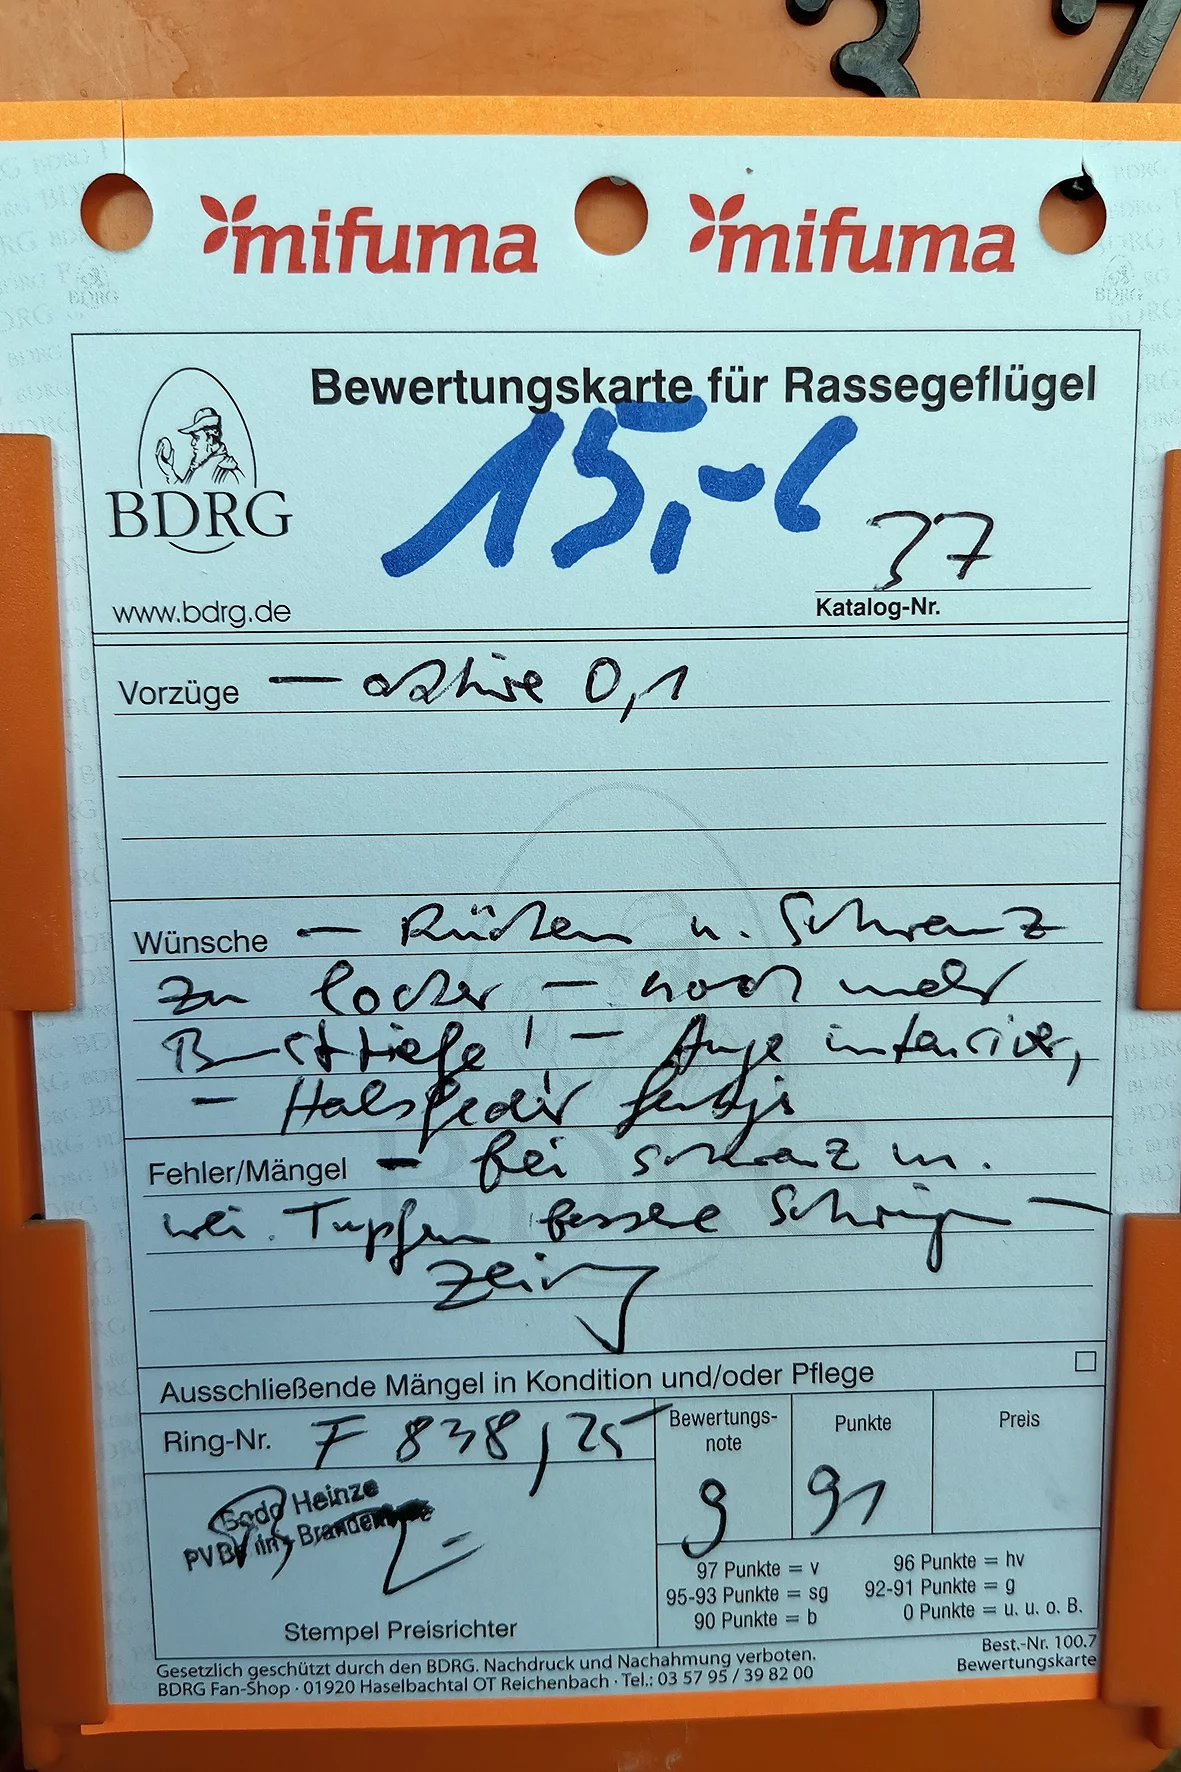 37
mifuma mifuma
BDRG
Bewertungskarte für Rassegeflügel
15,-€
37
www.bdrg.de
Katalog-Nr.
Vorzüge — aktive 0,1
Wünsche — Rücken u. Schwanz
zu locker — noch mehr
Brusttiefe! — Auge intensiver,
— Halsfeder
Fehler/Mängel — bei Schwanz u.
Tupfen bessere
Ausschließende Mängel in Kondition und/oder Pflege
Ring-Nr. F 838, 25
Bewertungs-
note
Punkte
Preis
g
91
Heinze
PV Brandenburg
97 Punkte = v
96 Punkte = hv
95-93 Punkte = sg
92-91 Punkte = g
90 Punkte = b
0 Punkte = u. u. o. B.
Stempel Preisrichter
Gesetzlich geschützt durch den BDRG. Nachdruck und Nachahmung verboten.
BDRG Fan-Shop · 01920 Haselbachtal OT Reichenbach · Tel.: 03 57 95 / 39 82 00
Best.-Nr. 100.7
Bewertungskarte